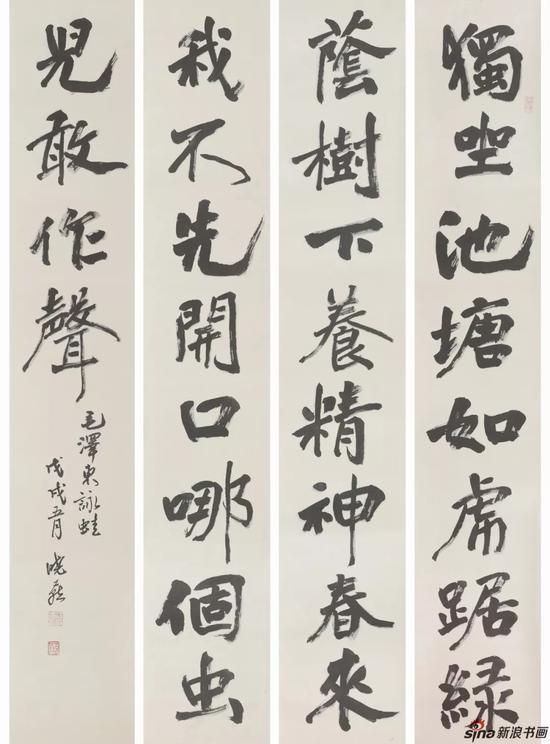 獨坐池塘如虎踞綠
蔭樹下養精神春來
我不先開口哪個虫
兒敢作聲
毛澤東詠蛙
戊戌五月 曉燕
sina 新浪书画